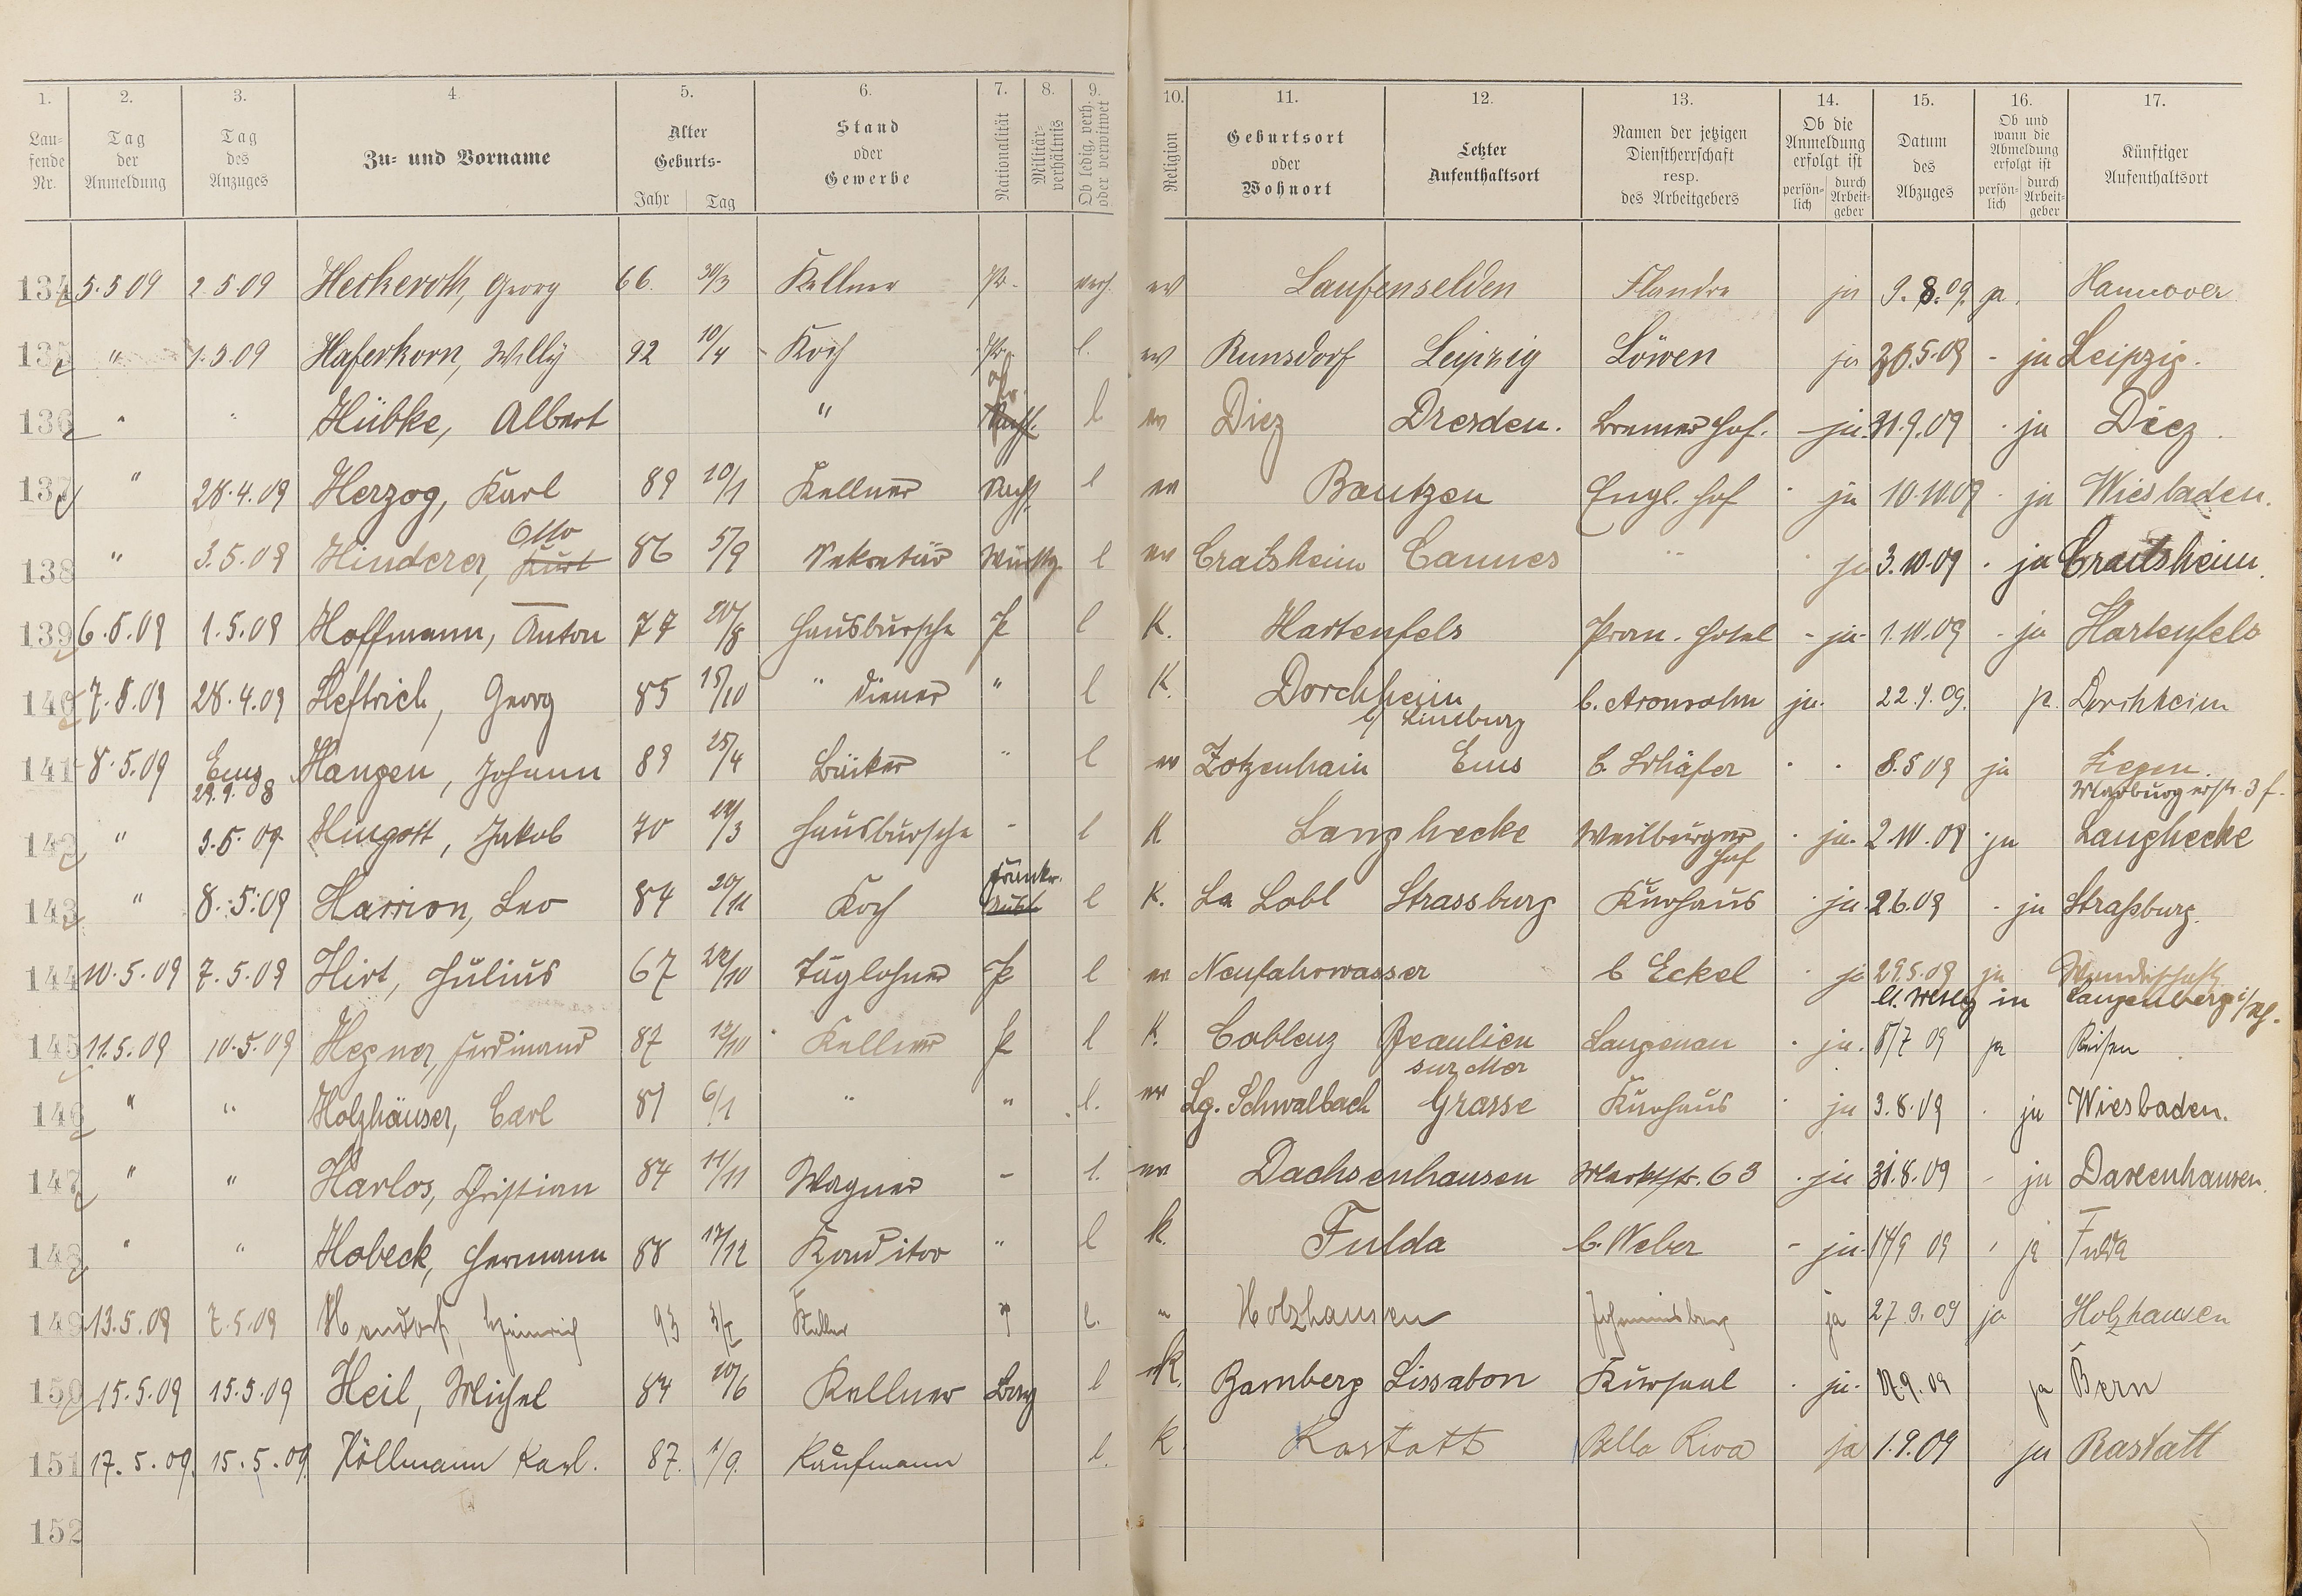 1. 2. 3. 4. 5. 6. 7. 8. 9. 10. 11. 12. 13. 14. 15. 16. 17.
Laufende Nr. Tag der Anmeldung Tag des Anzuges Zu- und Vorname Alter Geburts- Jahr Tag Stand oder Gewerbe Nationalität Militärverhältnis Ob ledig, verh. oder verwitwet Religion Geburtsort oder Wohnort Letzter Aufenthaltsort Namen der jetzigen Dienstherrschaft resp. des Arbeitgebers Ob die Anmeldung erfolgt ist persönlich durch Arbeitgeber Datum des Abzuges Ob und wann die Abmeldung erfolgt ist persönlich durch Arbeitgeber Künftiger Aufenthaltsort
134 5.5 09 2.5.09 Herkeroth, Georg 66. 30/3 Kellner Pr. verh. ev Laufenselden Flandre ja 9.8.09. p. Hannover
135 " 1.5.09 Haferkorn, Willy 92 10/4 Koch l. ev Runsdorf Leipzig Löwen ja 20.5.09 - ja Leipzig.
136 " " Hübke, Albert " l ev Diez Dresden. Bremer Hof. - ja. 31.9.09 . ja Diez.
137 " 28.4.09 Herzog, Karl 89 20/1 Kellner l ev Bautzen Engl. Hof . ja 10.10.09 . ja Wiesbaden.
138 " 3.5.09 Hinderer, Kurt Otto 86 5/9 Sekretär Württg. l ev Crailsheim Cannes " ja 3.10.09 . ja Crailsheim.
139 6.5.09 1.5.09 Hoffmann, Anton 77 20/8 Hausbursche P l K. Hartenfels Prom. Hotel - ja - 1.10.09 - ja Hartenfels
140 7.5.09 28.4.09 Heftrich, Georg 85 15/10 " diener " l K. Dorchheim b/ Limburg b. Aronsohn ja. 22.9.09. p. Dorchheim
141 8.5.09 Ems 29.9. 08 Hangen, Johann 89 25/4 Bäcker " l ev Zotzenhain Ems b. Schäfer . . 8.5 09 ja Siegen. Marburgerstr. 3 f.
142 " 3.5.09 Hingott, Jakob 70 24/3 Hausbursche - l K Langhecke Weilburger Hof . ja. 2.10.09 ja Langhecke
143 " 8.5.09 Harrion, Leo 84 20/11 Koch Frankr. l K. La Lobl Strassburg Kurhaus . ja. 2.6.09 - ja Straßburg.
144 10.5.09 7.5.09 Hirt, Julius 67 22/10 Taglöhner P l ev Neufahrwasser b Eckel . ja 29.5.09 ja Wanderschaft
in Langenberg i/Rh.
145 11.5.09 10.5.09 Hegner, Ferdinand 87 12/10 Kellner P l K. Coblenz Beaulieu sur Mer Langenau . ja. 8/7 09 ja Reisen
146 " " Holzhäuser, Carl 87 6/1 " " l. ev Lg. Schwalbach Grasse Kurhaus . ja 3.8.09 . ja Wiesbaden.
147 " " Harlos, Christian 84 11/11 Wagner - l. ev Dachsenhausen Marktstr. 63 . ja 31.8.09 - ja Daxenhausen.
148 " " Hobeck, Hermann 88 17/12 Konditor " l k. Fulda b. Weber - ja. 14/9 09 ' ja Fulda
149 13.5.09 7.5.09 Heinrich 93 l. " Holzhausen Johannisberg ja 27.9.09 ja Holzhausen
150 15.5.09 15.5.09 Heil, Michel 84 20/6 Kellner Bay l K. Bamberg Lissabon Kursaal . ja. 17.9.09 ja Bern
151 17.5.09. 15.5.09. Höllmann Karl. 87. 1/9. Kaufmann l. k Rastatt Bella Riva ja 1.9.09 ja Rastatt
152